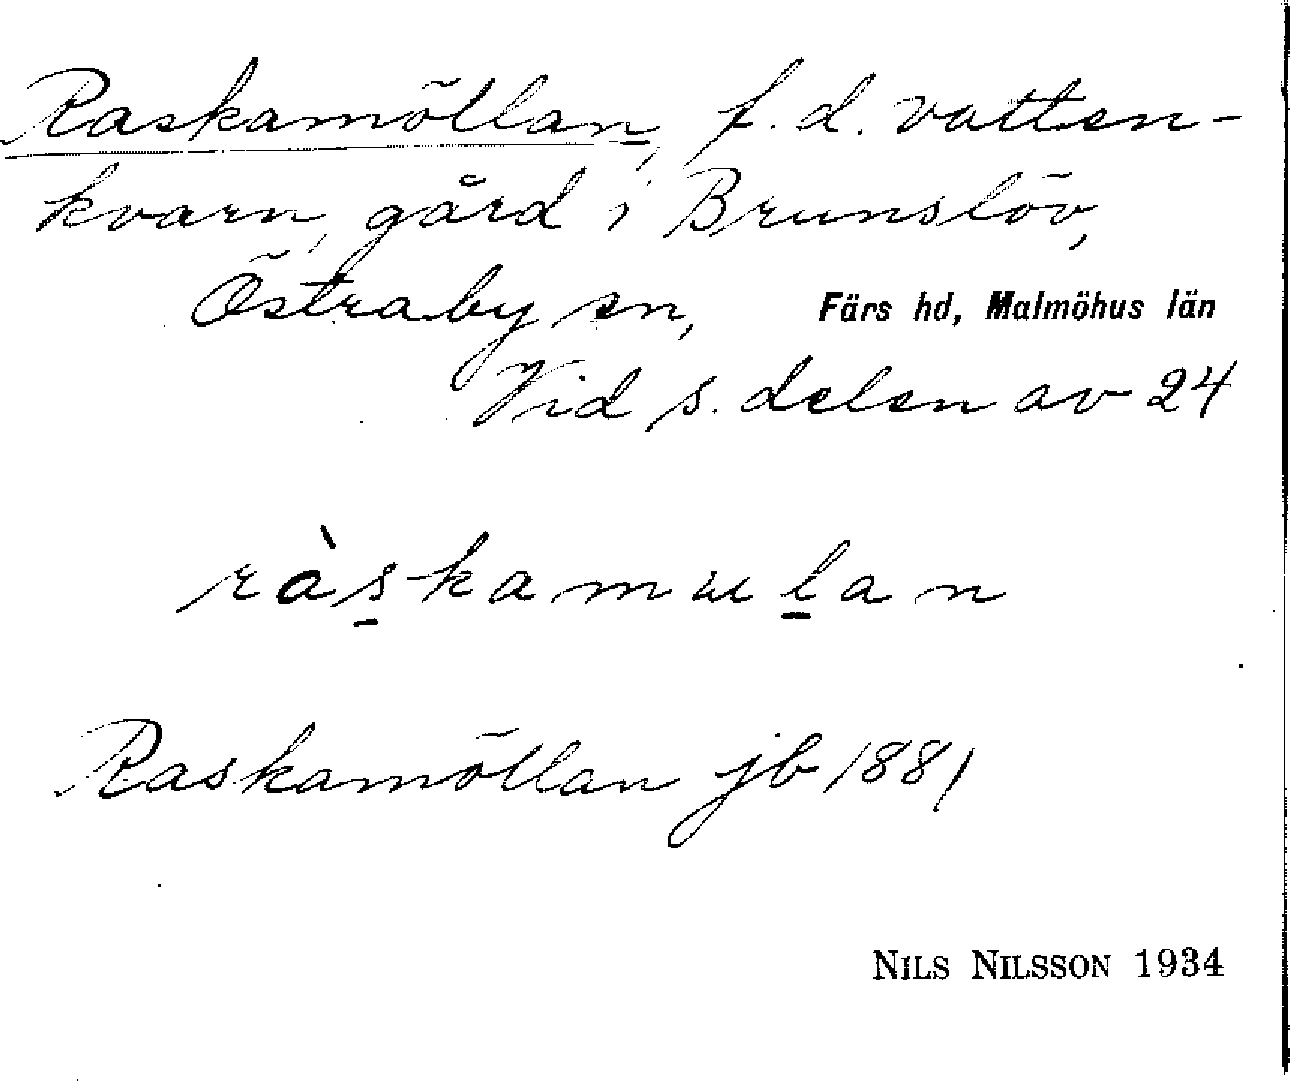 Raskamöllan, f.d. vatten-
kvarn, gård i Brunslöv,
Östraby sn, Färs hd, Malmöhus län
Vid s. delen av 24
ràs̱kamɯḻan
Raskamöllan jb 1881
NILS NILSSON 1934